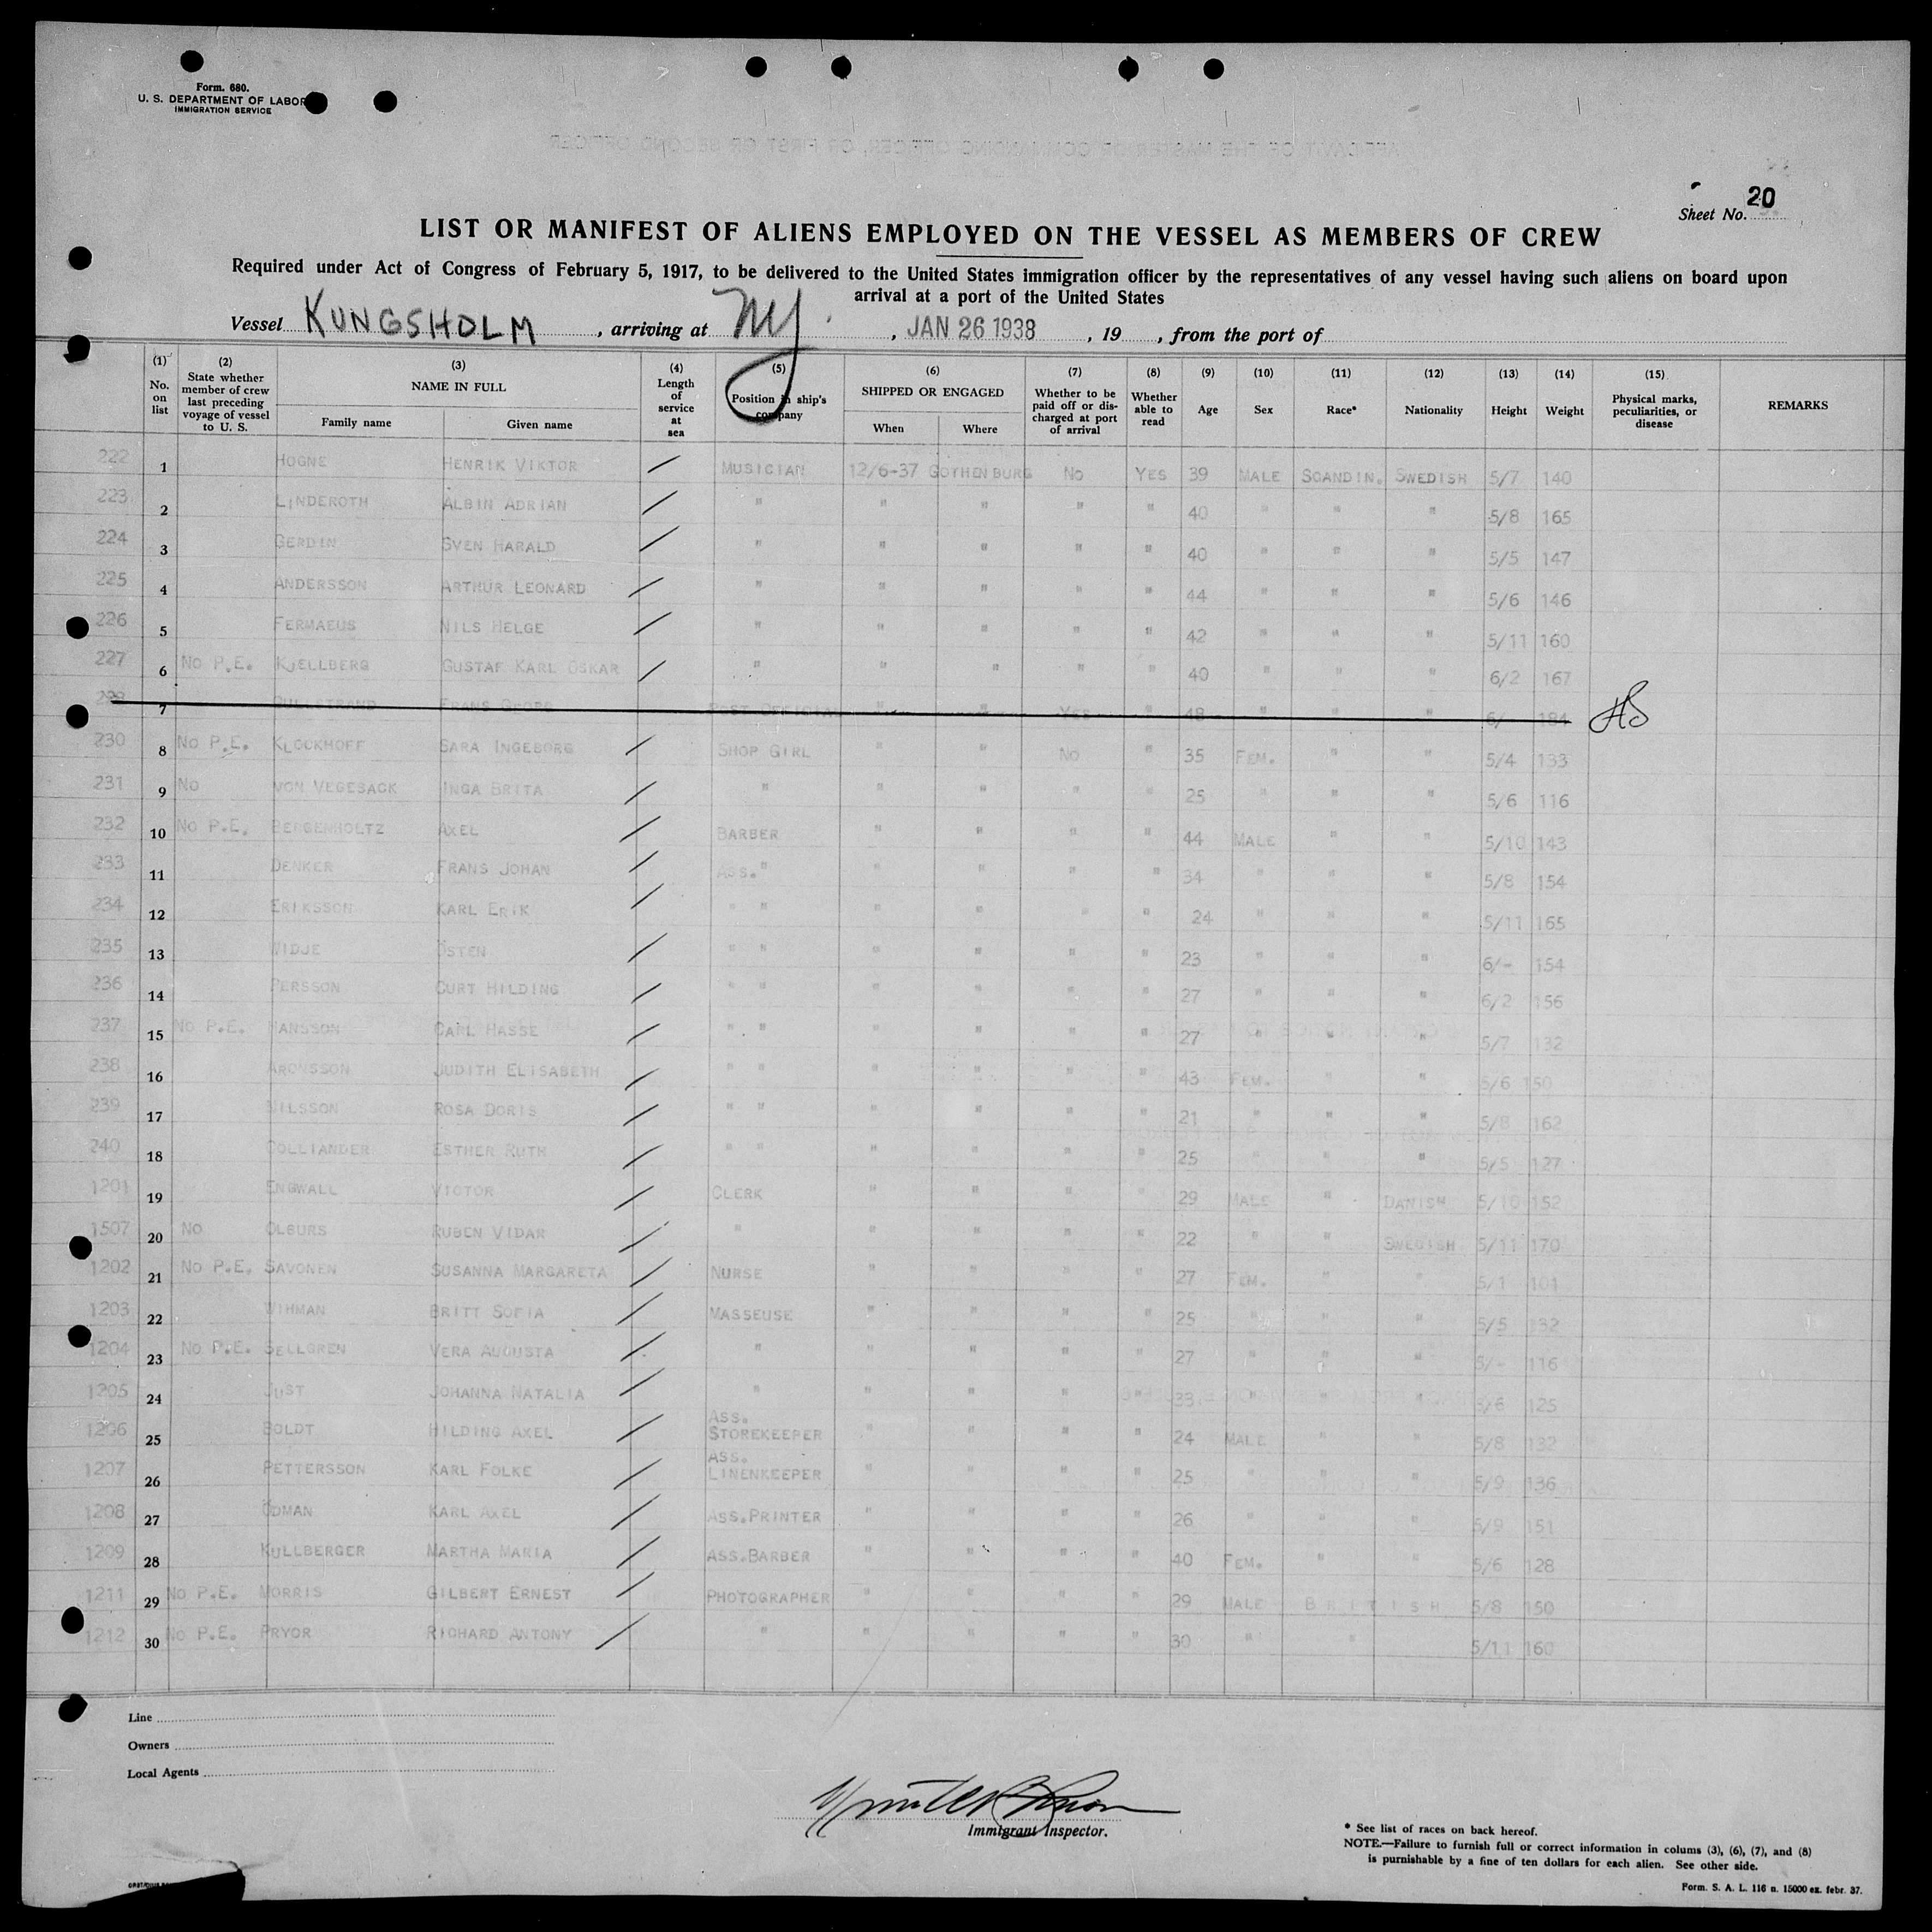 Form. 680.
U. S. DEPARTMENT OF LABOR
IMMIGRATION SERVICE
Sheet No. 20
LIST OR MANIFEST OF ALIENS EMPLOYED ON THE VESSEL AS MEMBERS OF CREW
Required under Act of Congress of February 5, 1917, to be delivered to the United States immigration officer by the representatives of any vessel having such aliens on board upon
arrival at a port of the United States
Vessel KUNGSHOLM , arriving at NY. , JAN 26 1938 , 19 , from the port of
(1) No. on list (2) State whether member of crew last preceding voyage of vessel to U. S. (3) NAME IN FULL Family name Given name (4) Length of service at sea (5) Position in ship's company (6) SHIPPED OR ENGAGED When Where (7) Whether to be paid off or discharged at port of arrival (8) Whether able to read (9) Age (10) Sex (11) Race* (12) Nationality (13) Height (14) Weight (15) Physical marks, peculiarities, or disease REMARKS
222 1 HOGNE HENRIK VIKTOR / MUSICIAN 12/6-37 GOTHENBURG NO YES 39 MALE SCANDIN. SWEDISH 5/7 140
223 2 LINDEROTH ALBIN ADRIAN / " " " " " 40 " " " 5/8 165
224 3 GERDIN SVEN HARALD / " " " " " 40 " " " 5/5 147
225 4 ANDERSSON ARTHUR LEONARD / " " " " " 44 " " " 5/6 146
226 5 FERMAEUS NILS HELGE / " " " " " 42 " " " 5/11 160
227 6 NO P.E. KJELLBERG GUSTAF KARL OSKAR / " " " " " 40 " " " 6/2 167
7 FRANS GEORG POST OFFICIAL " " YES " 48 " " " 6/ 184
230 8 NO P.E. KLOCKHOFF SARA INGEBORG / SHOP GIRL " " NO " 35 FEM. " " 5/4 133
231 9 NO VON VEGESACK INGA BRITA / " " " " " 25 " " " 5/6 116
232 10 NO P.E. BERGENHOLTZ AXEL / BARBER " " " " 44 MALE " " 5/10 143
233 11 DENKER FRANS JOHAN / ASS." " " " " 34 " " " 5/8 154
234 12 ERIKSSON KARL ERIK / " " " " " " 24 " " " 5/11 165
235 13 WIDJE ÖSTEN / " " " " " " 23 " " " 6/- 154
236 14 PERSSON CURT HILDING / " " " " " " 27 " " " 6/2 156
237 15 NO P.E. HANSSON CARL HASSE / " " " " " " 27 " " " 5/7 132
238 16 ARONSSON JUDITH ELISABETH / " " " " " " 43 FEM. " " 5/6 150
239 17 NILSSON ROSA DORIS / " " " " " " 21 " " " 5/8 162
240 18 COLLIANDER ESTHER RUTH / " " " " " " 25 " " " 5/5 127
1201 19 ENGWALL VICTOR / CLERK " " " " 29 MALE " DANISH 5/10 152
1507 20 NO OLBURS RUBEN VIDAR / " " " " " 22 " " SWEDISH 5/11 170
1202 21 NO P.E. SAVONEN SUSANNA MARGARETA / NURSE " " " " 27 FEM. " " 5/1 101
1203 22 WIHMAN BRITT SOFIA / MASSEUSE " " " " 25 " " " 5/5 132
1204 23 NO P.E. SELLGREN VERA AUGUSTA / " " " " " 27 " " " 5/- 116
1205 24 JUST JOHANNA NATALIA / " " " " " 33 " " " 5/6 125
1206 25 BOLDT HILDING AXEL / ASS. STOREKEEPER " " " " 24 MALE " " 5/8 132
1207 26 PETTERSSON KARL FOLKE / ASS. LINENKEEPER " " " " 25 " " " 5/9 136
1208 27 ÖDMAN KARL AXEL / ASS.PRINTER " " " " 26 " " " 5/9 151
1209 28 KULLBERGER MARTHA MARIA / ASS.BARBER " " " " 40 FEM. " " 5/6 128
1211 29 NO P.E. MORRIS GILBERT ERNEST / PHOTOGRAPHER " " " " 29 MALE BRITISH 5/8 150
1212 30 NO P.E. PRYOR RICHARD ANTONY / " " " " " 30 " " 5/11 160
Line
Owners
Local Agents
Immigrant Inspector.
* See list of races on back hereof.
NOTE.—Failure to furnish full or correct information in colums (3), (6), (7), and (8)
is purnishable by a fine of ten dollars for each alien. See other side.
Form. S. A. L. 116 n. 15000 ex. febr. 37.